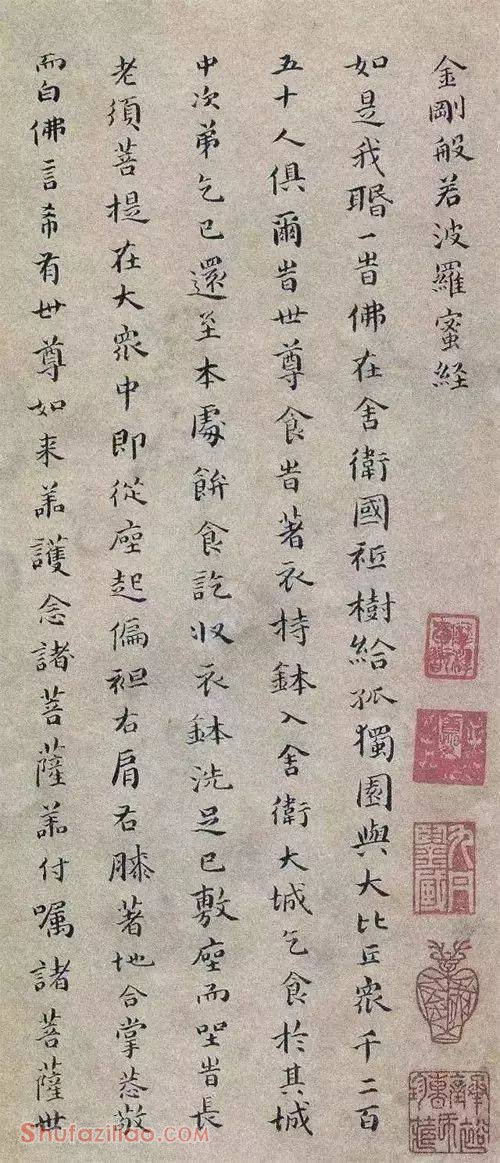 金剛般若波羅蜜経
如是我聞一旹佛在舍衛國祇樹給孤獨園與大比丘衆千二百
五十人俱爾旹世尊食旹著衣持鉢入舍衛大城乞食於其城
中次弟乞已還至本處飯食訖收衣鉢洗足已敷座而坐旹長
老須菩提在大衆中即從座起偏袒右肩右膝著地合掌恭敬
而白佛言希有世尊如来善護念諸菩薩善付嘱諸菩薩世
Shufaziliao.com